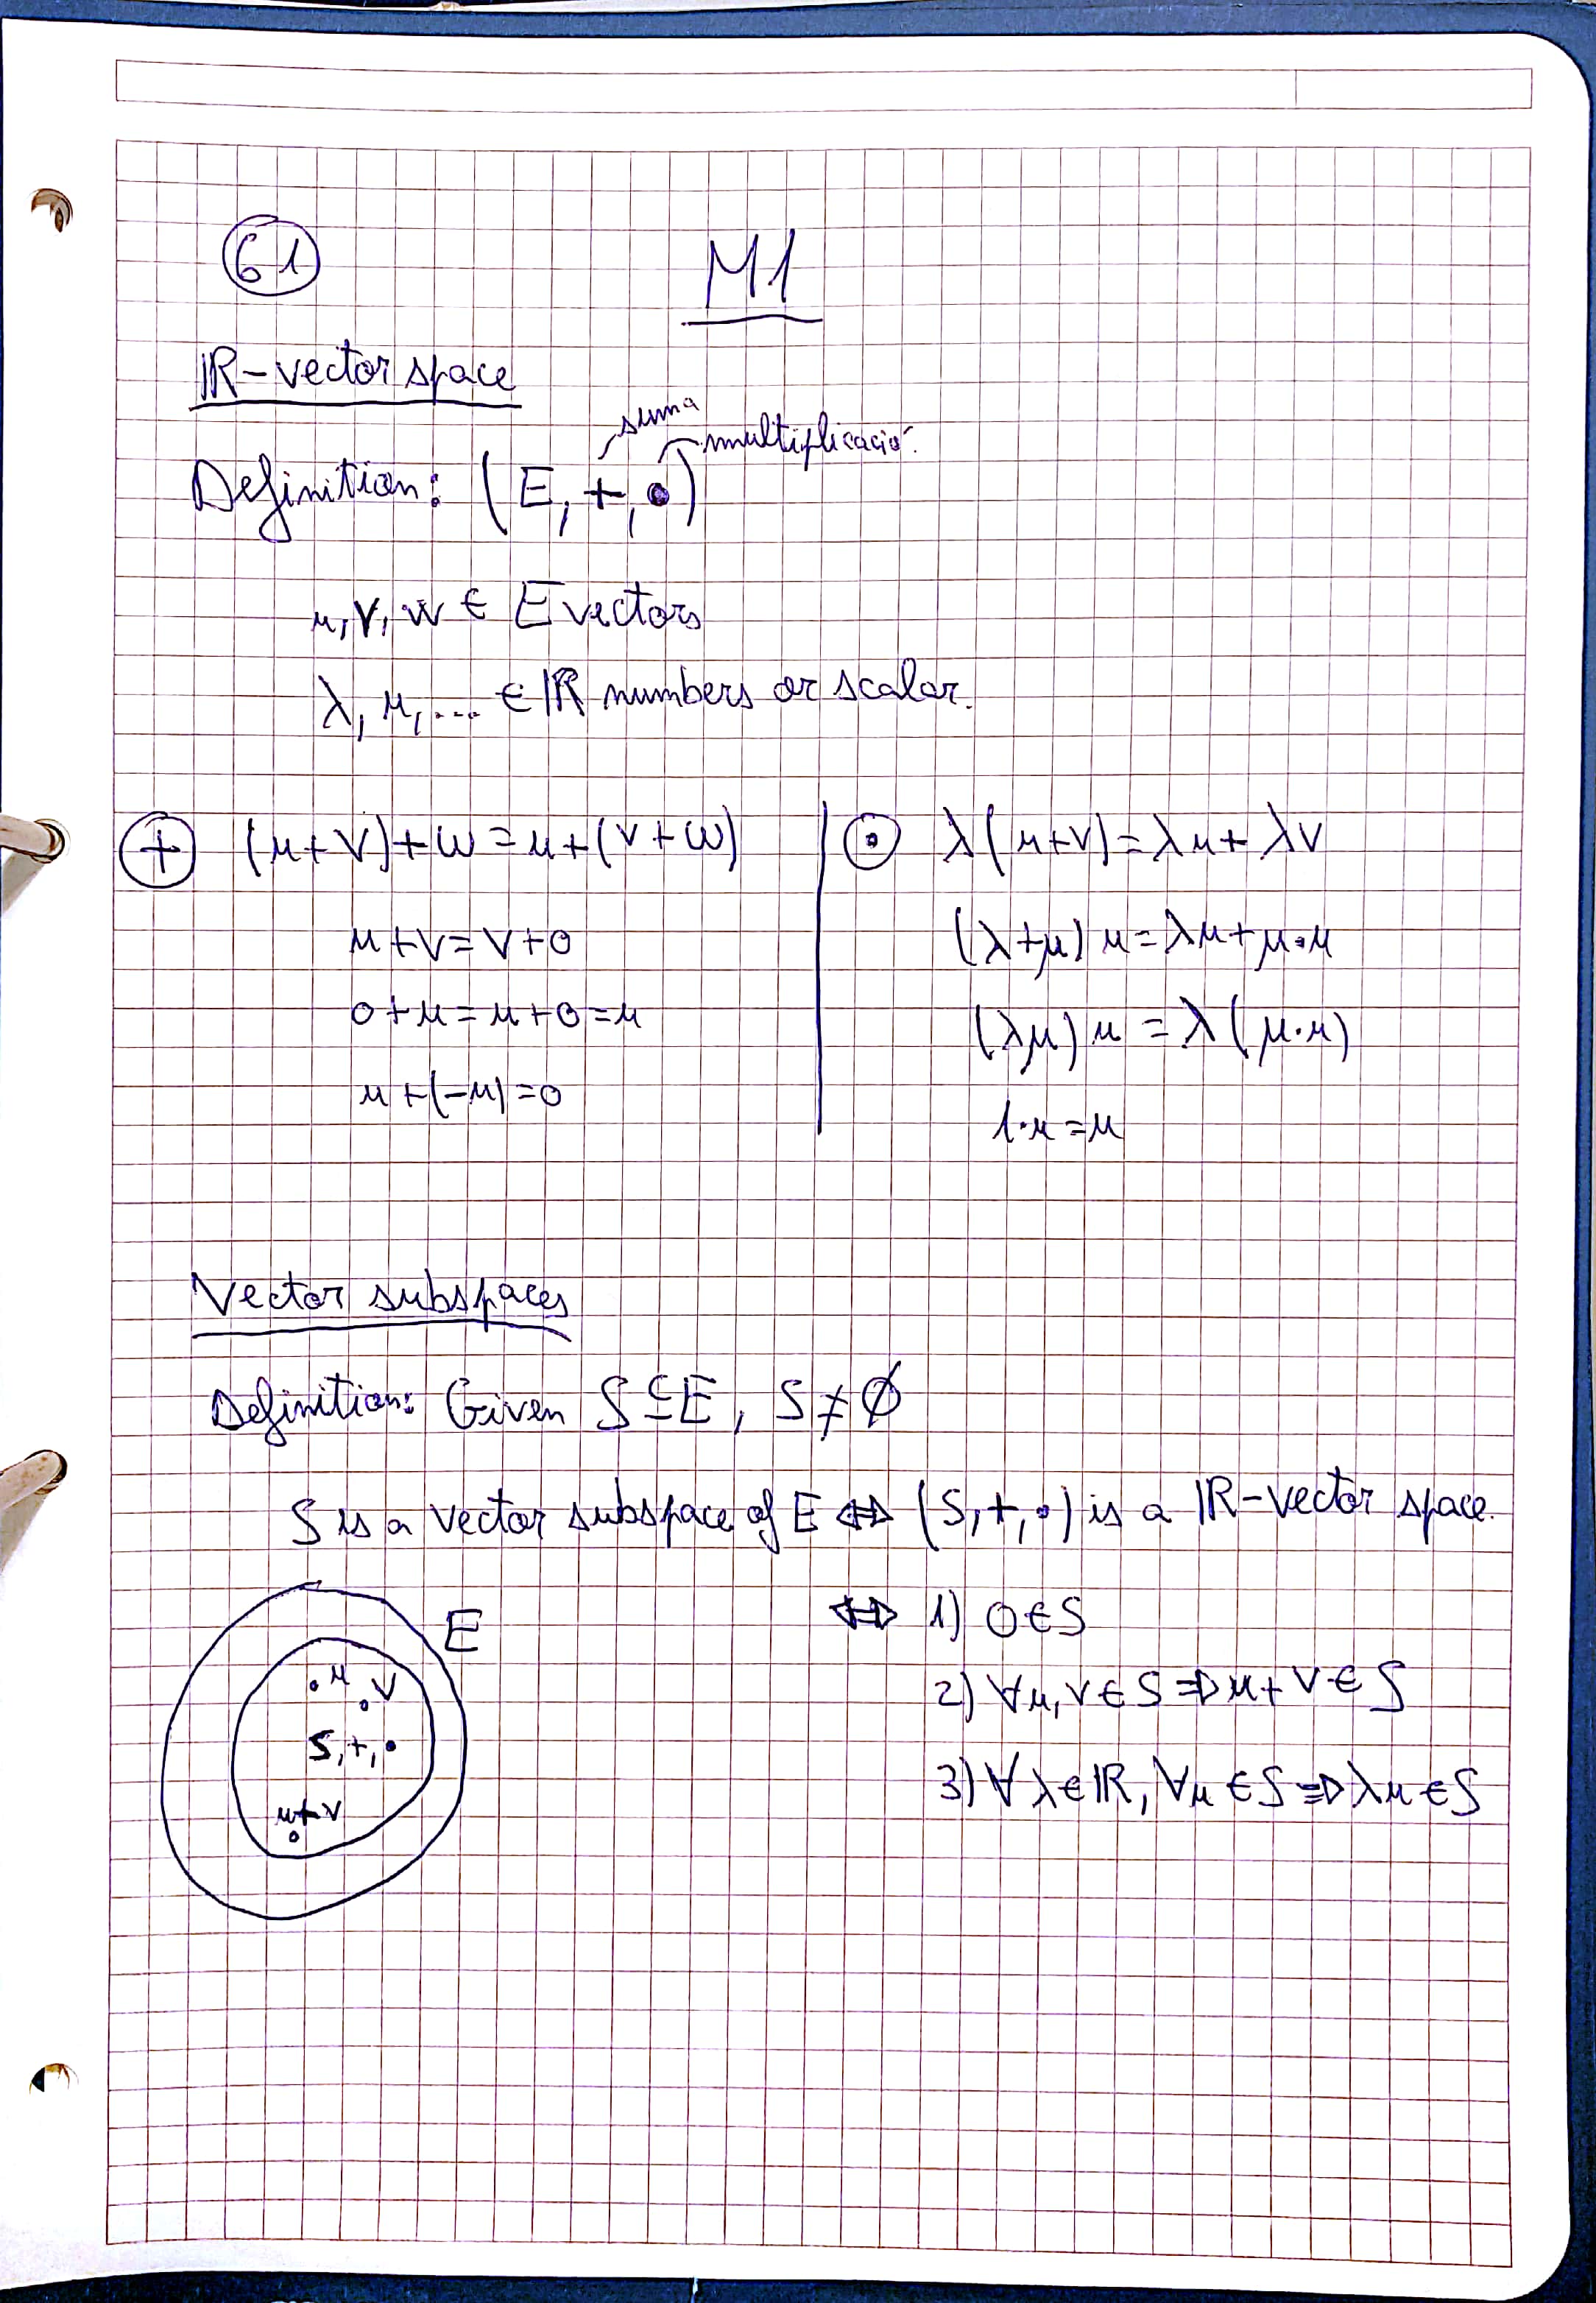 61
M1
IR-vector space
suma
multiplicació.
Definition: (E, +, •)
u, v, w ∈ E vectors
λ, μ, ... ∈ IR numbers or scalar.
+ (u+v)+w=u+(v+w)
u+v=v+0
0+u=u+0=u
u+(-u)=0
• λ(u+v)=λu+λv
(λ+μ)u=λu+μ·u
(λμ)u=λ(μ·u)
1·u=u
Vector subspaces
Definition: Given S⊆E, S≠∅
S is a vector subspace of E ⇔ (S,+,•) is a IR-vector space.
⇔ 1) 0∈S
2) ∀u,v∈S ⇒ u+v∈S
3) ∀λ∈IR, ∀u∈S ⇒ λu∈S
E
u
v
S,+,•
u+v